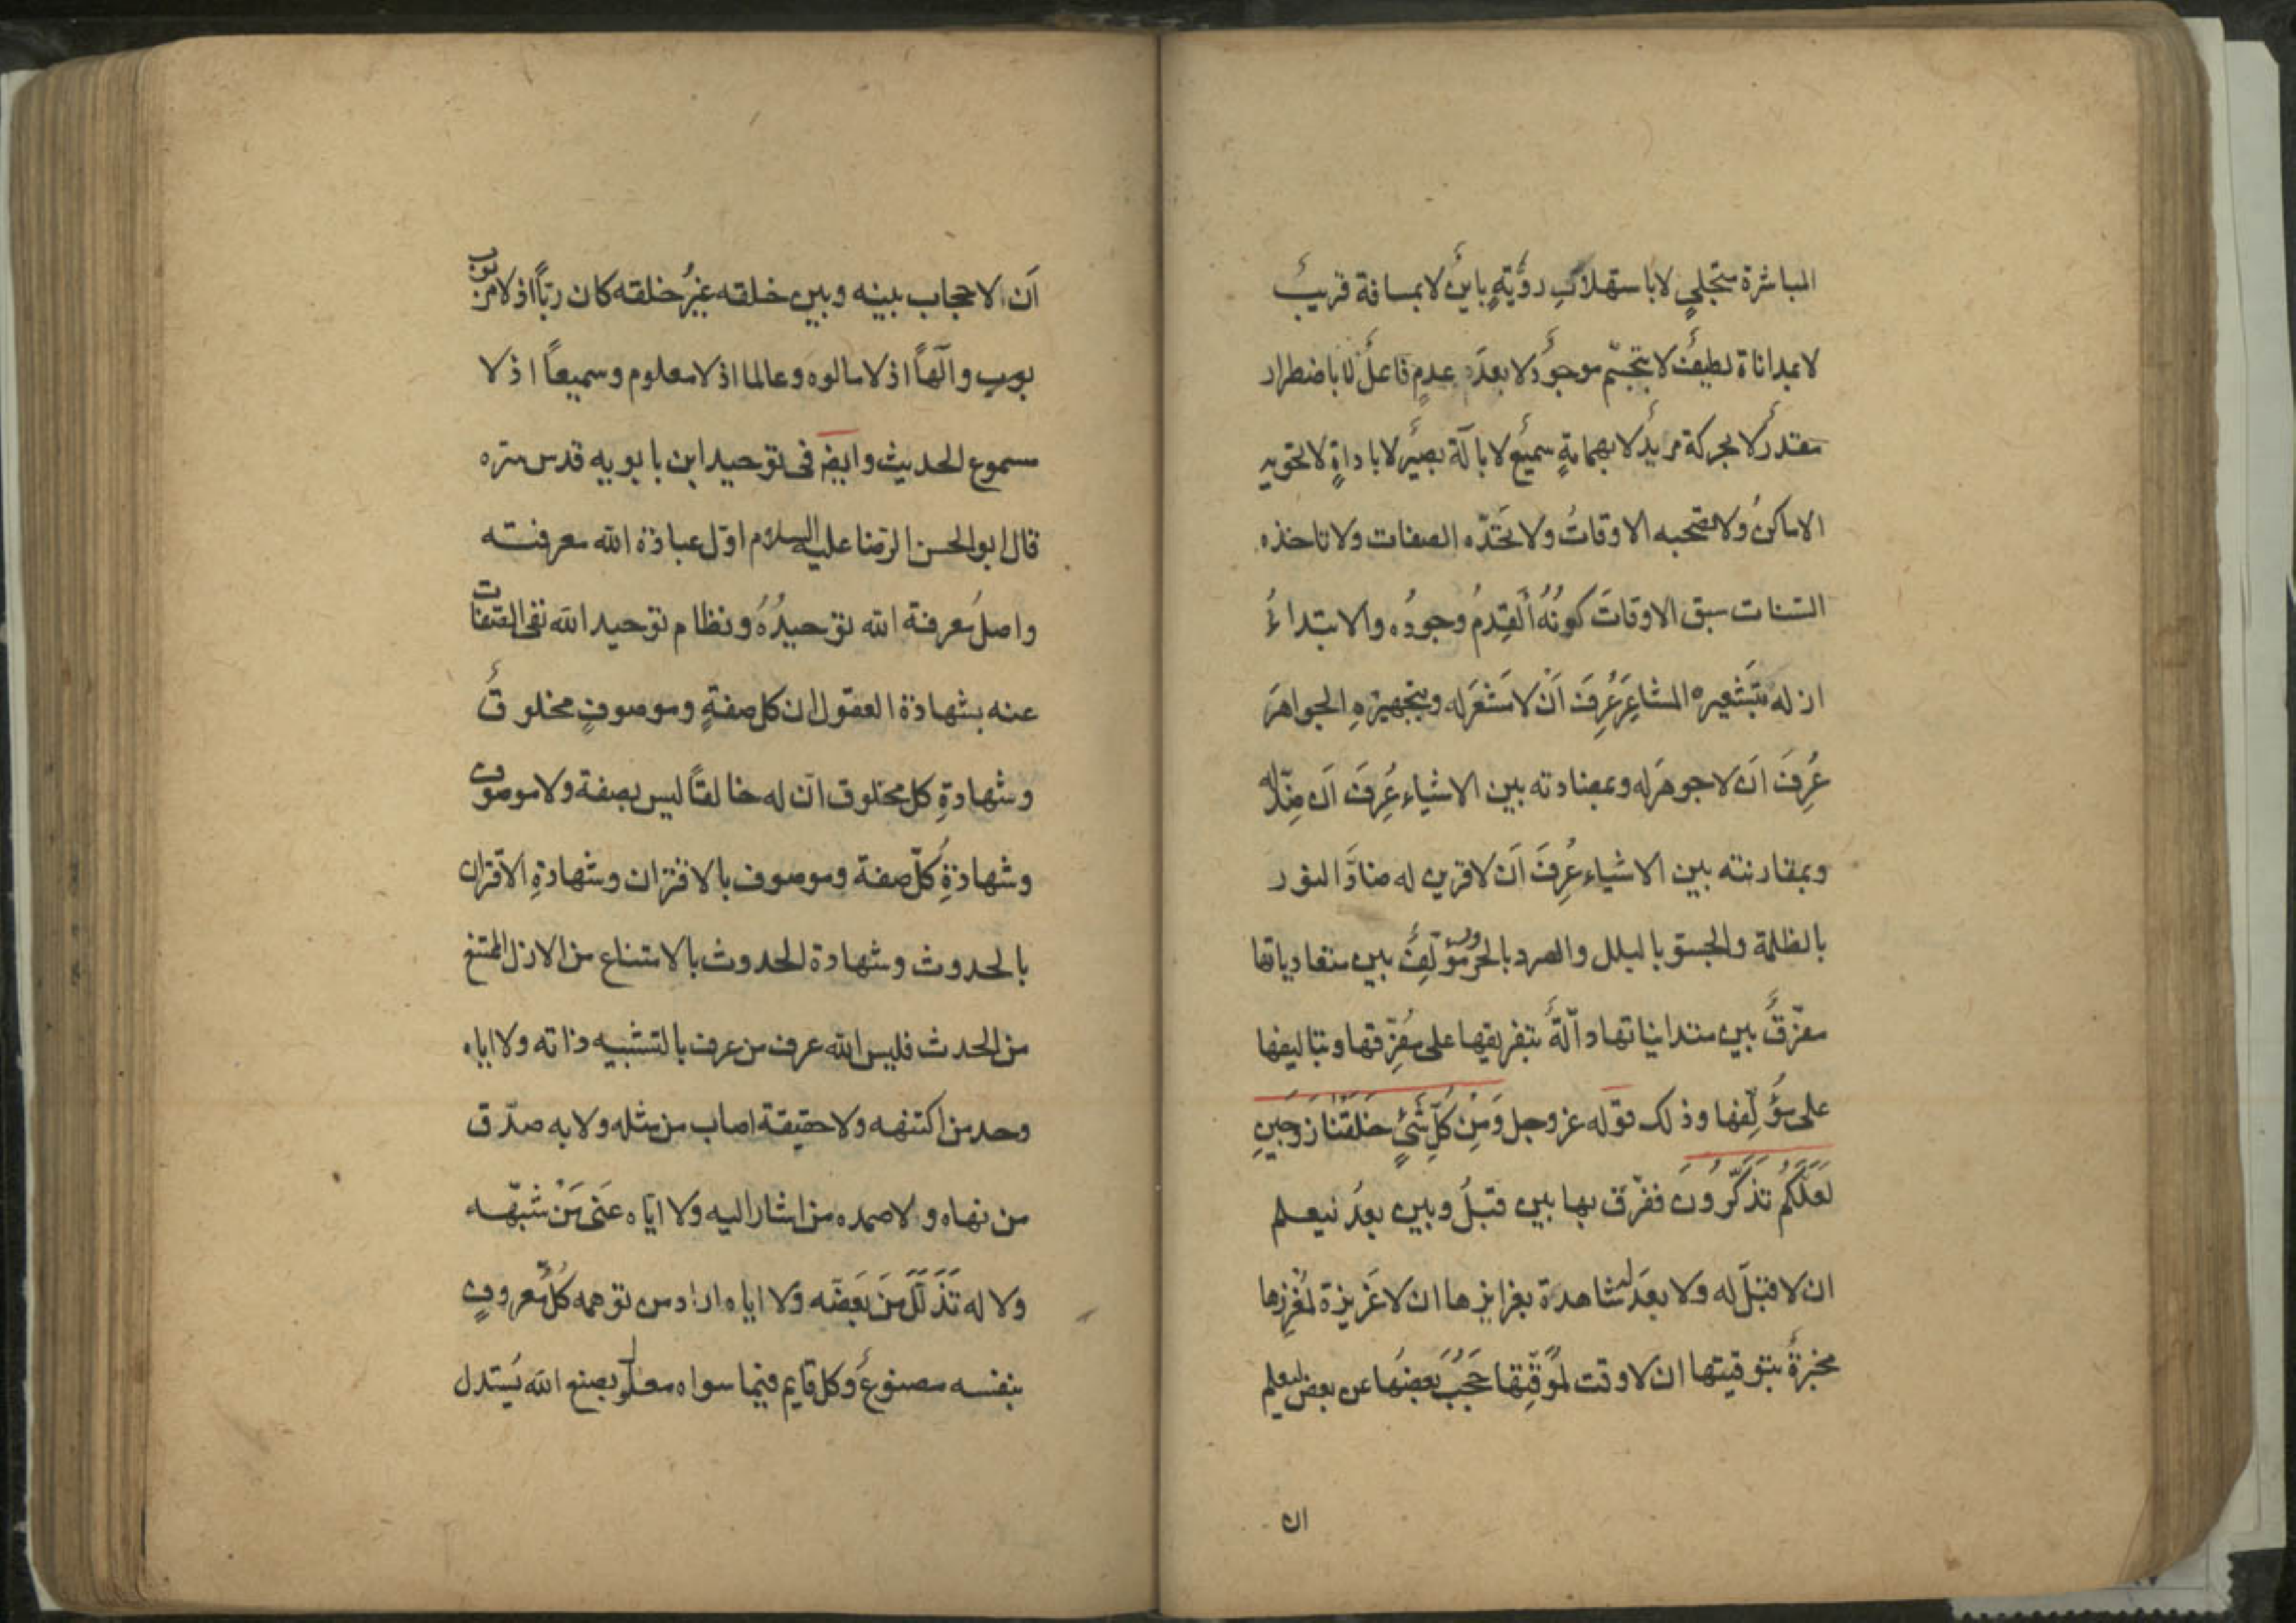 المباشرة متجلي لا باستهلاكِ رؤيةٍ باينٌ لا بمسافة قريبٌ
لا بمداناة لطيفٌ لا بتجسّم موجودٌ لا بعدَ عدمٍ فاعلٌ لا باضطرار
مقدرٌ لا بحركة مريدٌ لا بهمامةٍ سميعٌ لا بآلة بصيرٌ لا باداةٍ لا تحويه
الاماكنُ ولا تصحبه الاوقاتُ ولا تحَدّه الصفات ولا تاخذه
السّنات سبق الاوقاتَ كونُهُ والقِدمُ وجودُه والابتداءُ
ازله بتَشعيره المشاعِرَ عُرِفَ اَنْ لا مَشعَرَ له وبتجهيره الجواهرَ
عُرِفَ اَن لا جوهَرَ له وبمضادته بين الاشياء عُرِفَ اَن لا ضِدّ له
وبمقارنته بين الاشياء عُرِفَ اَن لا قرين له ضادَّ النور
بالظلمة والجسو بالبلل والصرد بالحرور مؤلّفٌ بين متعادياتها
مفرّقٌ بين متدانياتها دآلّةً بتفريقها على مُفرِّقها وبتاليفها
على مؤلِّفها وذلك قوله عز وجل وَمِنْ كُلِّ شَيْءٍ خَلَقْنَا زَوجَينِ
لَعَلَّكُم تَذَكَّرُونَ ففرّق بها بين قبلُ وبين بعدُ ليعلم
ان لا قبلَ له ولا بعدَ شاهدة بغرايزها ان لا غَريزة لمُغرِزها
مخبرةً بتوقيتها ان لا وقت لمُوَقّتِها حَجَبَ بعضَها عن بعض ليعلم
ان
اَن لا حجاب بينه وبين خلقه غيرُ خلقه كان ربّاً اذ لا مربوب
بوب والٓهاً اذ لا مالوه وعالما اذ لا معلوم وسميعاً اذ لا
مسموع الحديث وايضا فى توحيد ابن بابويه قدس سره
قال ابو الحسن الرضا عليه السلام اوّل عبادة الله معرفته
واصلُ معرفة الله توحيدُهُ ونظام توحيد الله نفى الصّفات
عنه بشهادة العقول ان كل صفةٍ وموصوفٍ مخلوقٌ
وشهادةِ كل مخلوق انّ له خالقاً ليس بصفة ولا موصوف
وشهادةِ كلّ صفة وموصوف بالاقتران وشهادةِ الاقتران
بالحدوث وشهادة الحدوث بالامتناع من الازل الممتنع
من الحدث فليس الله عرف من عرف بالتشبيه ذاته ولا اياه
وحد من اكتنهه ولا حقيقة اصاب من مثله ولا به صدّق
من نهاه ولا صمده من اشار اليه ولا ايّاه عَنى مَنْ شبّهه
ولا له تَذَلَّلَ مَن بَعّضَه ولا اياه اراد من توهمه كُلُّ معروفٍ
بنفسه مصنوعٌ وكل قايم فيما سواه معلول بصنع الله يُستدل